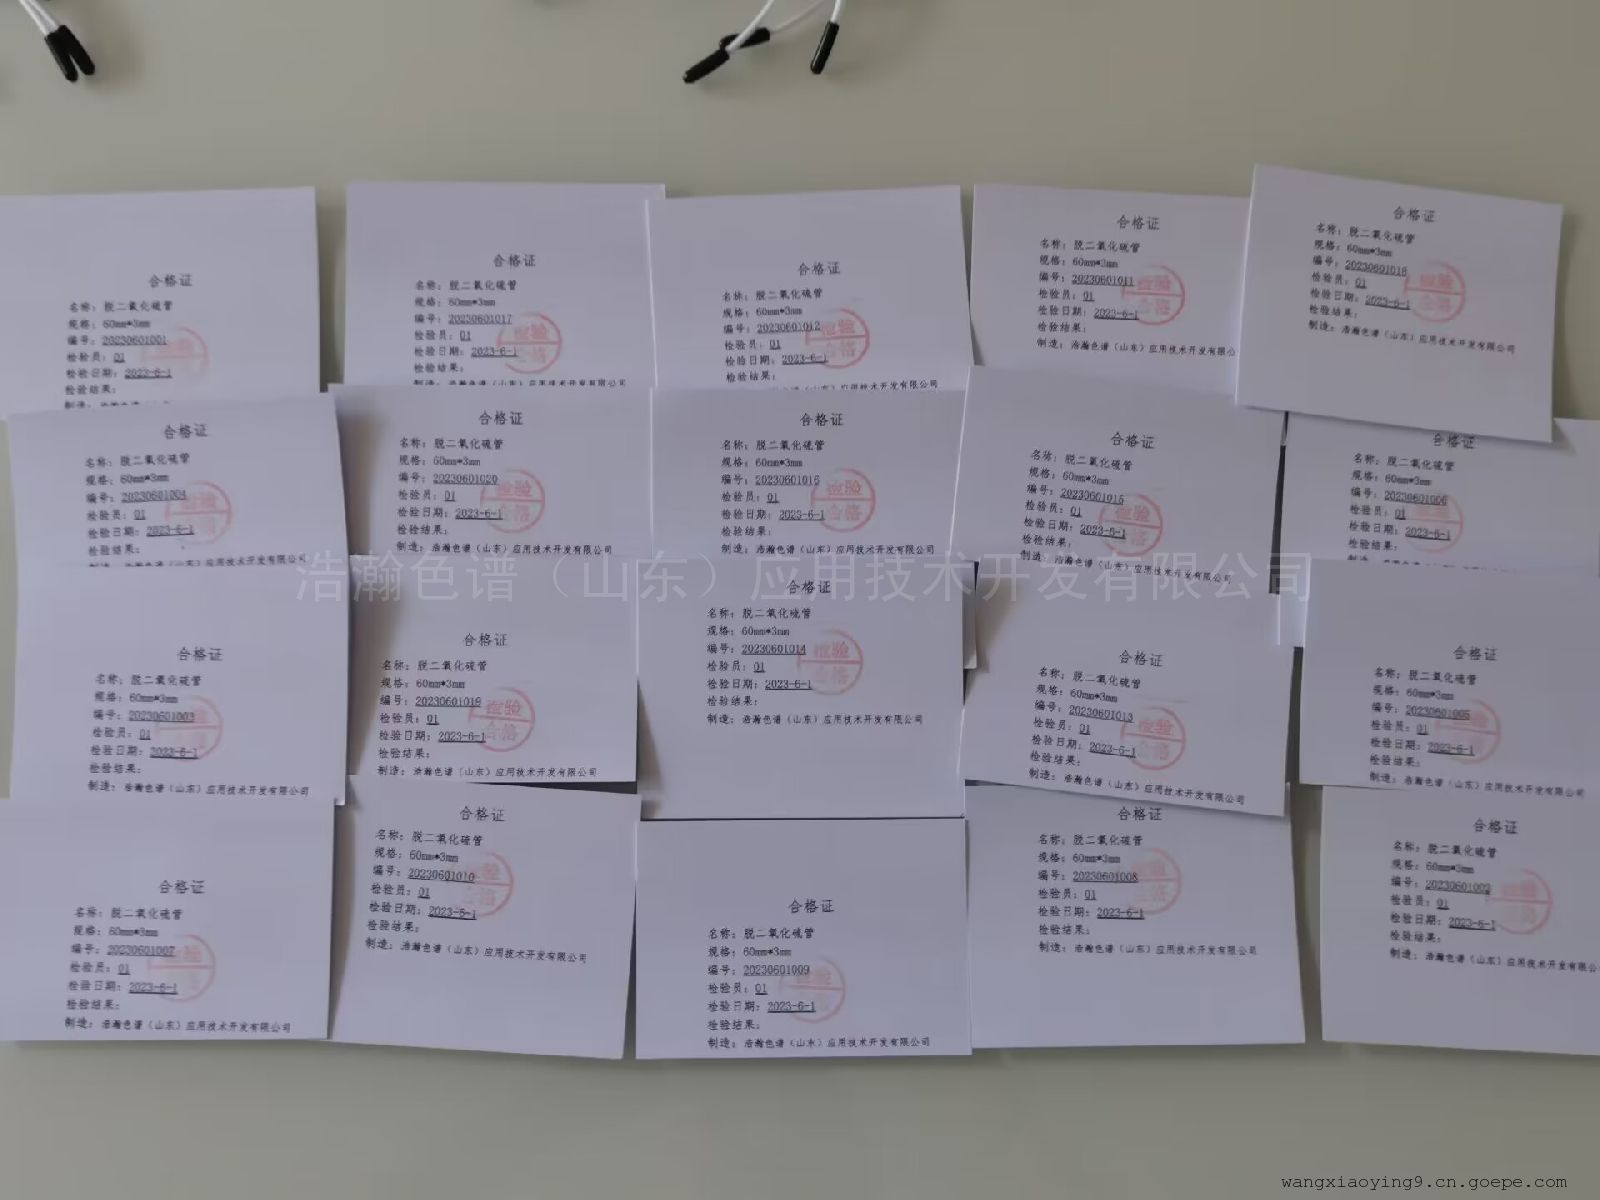 合格证
名称：脱二氧化硫管
规格：60mm*3mm
编号：20230601001
检验员：01
检验日期：2023-6-1
检验结果：
合格证
名称：脱二氧化硫管
规格：60mm*3mm
编号：20230601017
检验员：01
检验日期：2023-6-1
检验结果：
制造：浩瀚色谱（山东）应用技术开发有限公司
检验
合格
合格证
名称：脱二氧化硫管
规格：60mm*3mm
编号：20230601012
检验员：01
检验日期：2023-6-1
检验结果：
应用技术开发有限公司
检验
合格
合格证
名称：脱二氧化硫管
规格：60mm*3mm
编号：20230601011
检验员：01
检验日期：2023-6-1
检验结果：
制造：浩瀚色谱（山东）应用技术开发有限公
检验
合格
合格证
名称：脱二氧化硫管
规格：60mm*3mm
编号：20230601018
检验员：01
检验日期：2023-6-1
检验结果：
制造：浩瀚色谱（山东）应用技术开发有限公司
检验
合格
合格证
名称：脱二氧化硫管
规格：60mm*3mm
编号：20230601004
检验员：01
检验日期：2023-6-1
检验结果：
制造：浩瀚色谱（山东）应用技术开发有限公司
合格证
名称：脱二氧化硫管
规格：60mm*3mm
编号：20230601020
检验员：01
检验日期：2023-6-1
检验结果：
制造：浩瀚色谱（山东）应用技术开发有限公司
检验
合格
合格证
名称：脱二氧化硫管
规格：60mm*3mm
编号：20230601016
检验员：01
检验日期：2023-6-1
检验结果：
制造：浩瀚色谱（山东）应用技术开发有限公司
检验
合格
合格证
名称：脱二氧化硫管
规格：60mm*3mm
编号：20230601015
检验员：01
检验日期：2023-6-1
检验结果：
制造：浩瀚色谱（山东）应用技术开发有限公司
检验
合格
合格证
名称：脱二氧化硫管
规格：60mm*3mm
编号：20230601006
检验员：01
检验日期：2023-6-1
检验结果：
浩瀚色谱（山东）应用技术开发有限公司
合格证
名称：脱二氧化硫管
规格：60mm*3mm
编号：20230601003
检验员：01
检验日期：2023-6-1
检验结果：
制造：浩瀚色谱（山东）应用技术开发有限公司
合格证
名称：脱二氧化硫管
规格：60mm*3mm
编号：20230601019
检验员：01
检验日期：2023-6-1
检验结果：
制造：浩瀚色谱（山东）应用技术开发有限公司
检验
合格
合格证
名称：脱二氧化硫管
规格：60mm*3mm
编号：20230601014
检验员：01
检验日期：2023-6-1
检验结果：
制造：浩瀚色谱（山东）应用技术开发有限公司
检验
合格
合格证
名称：脱二氧化硫管
规格：60mm*3mm
编号：20230601013
检验员：01
检验日期：2023-6-1
检验结果：
制造：浩瀚色谱（山东）应用技术开发有限公司
检验
合格
合格证
名称：脱二氧化硫管
规格：60mm*3mm
编号：20230601005
检验员：01
检验日期：2023-6-1
检验结果：
制造：浩瀚色谱（山东）应用技术开发有限公司
合格证
名称：脱二氧化硫管
规格：60mm*3mm
编号：20230601007
检验员：01
检验日期：2023-6-1
检验结果：
制造：浩瀚色谱（山东）应用技术开发有限公司
合格证
名称：脱二氧化硫管
规格：60mm*3mm
编号：20230601010
检验员：01
检验日期：2023-6-1
检验结果：
制造：浩瀚色谱（山东）应用技术开发有限公司
合格证
名称：脱二氧化硫管
规格：60mm*3mm
编号：20230601009
检验员：01
检验日期：2023-6-1
检验结果：
制造：浩瀚色谱（山东）应用技术开发有限公司
合格证
名称：脱二氧化硫管
规格：60mm*3mm
编号：20230601008
检验员：01
检验日期：2023-6-1
检验结果：
制造：浩瀚色谱（山东）应用技术开发有限公司
合格证
名称：脱二氧化硫管
规格：60mm*3mm
编号：20230601002
检验员：01
检验日期：2023-6-1
检验结果：
制造：浩瀚色谱（山东）应用技术开发有限公
wangxiaoying9.cn.goepe.com